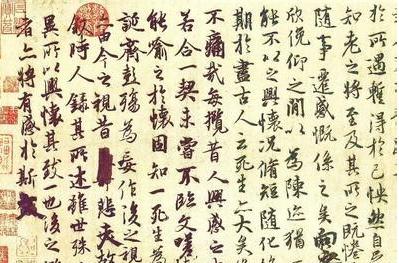 於所遇蹔得於己怏然自
知老之將至及其所之既惓
隨事遷感慨係之矣向
欣俛仰之閒以為陳迹猶
能不以之興懷況脩短隨化
期於盡古人云死生亦大矣
不痛哉每攬昔人興感之
若合一契未嘗不臨文嗟
能喻之於懷固知一死生為
誕齊彭殤為妄作後之視
由今之視昔悲夫故
敘時人錄其所述雖世殊
異所以興懷其致一也後之
者亦將有感於斯文